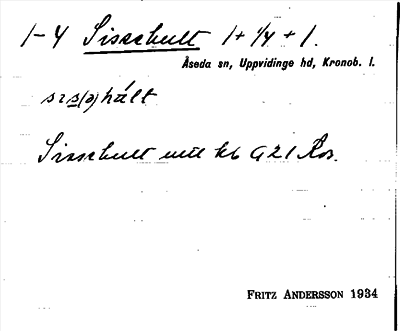 1-4 Sissehult 1 + 1/4 + 1.
Åseda sn, Uppvidinge hd, Kronob. l.
sɪs(ə)hált
Sissehult utl kb G21 Ros.
FRITZ ANDERSSON 1934